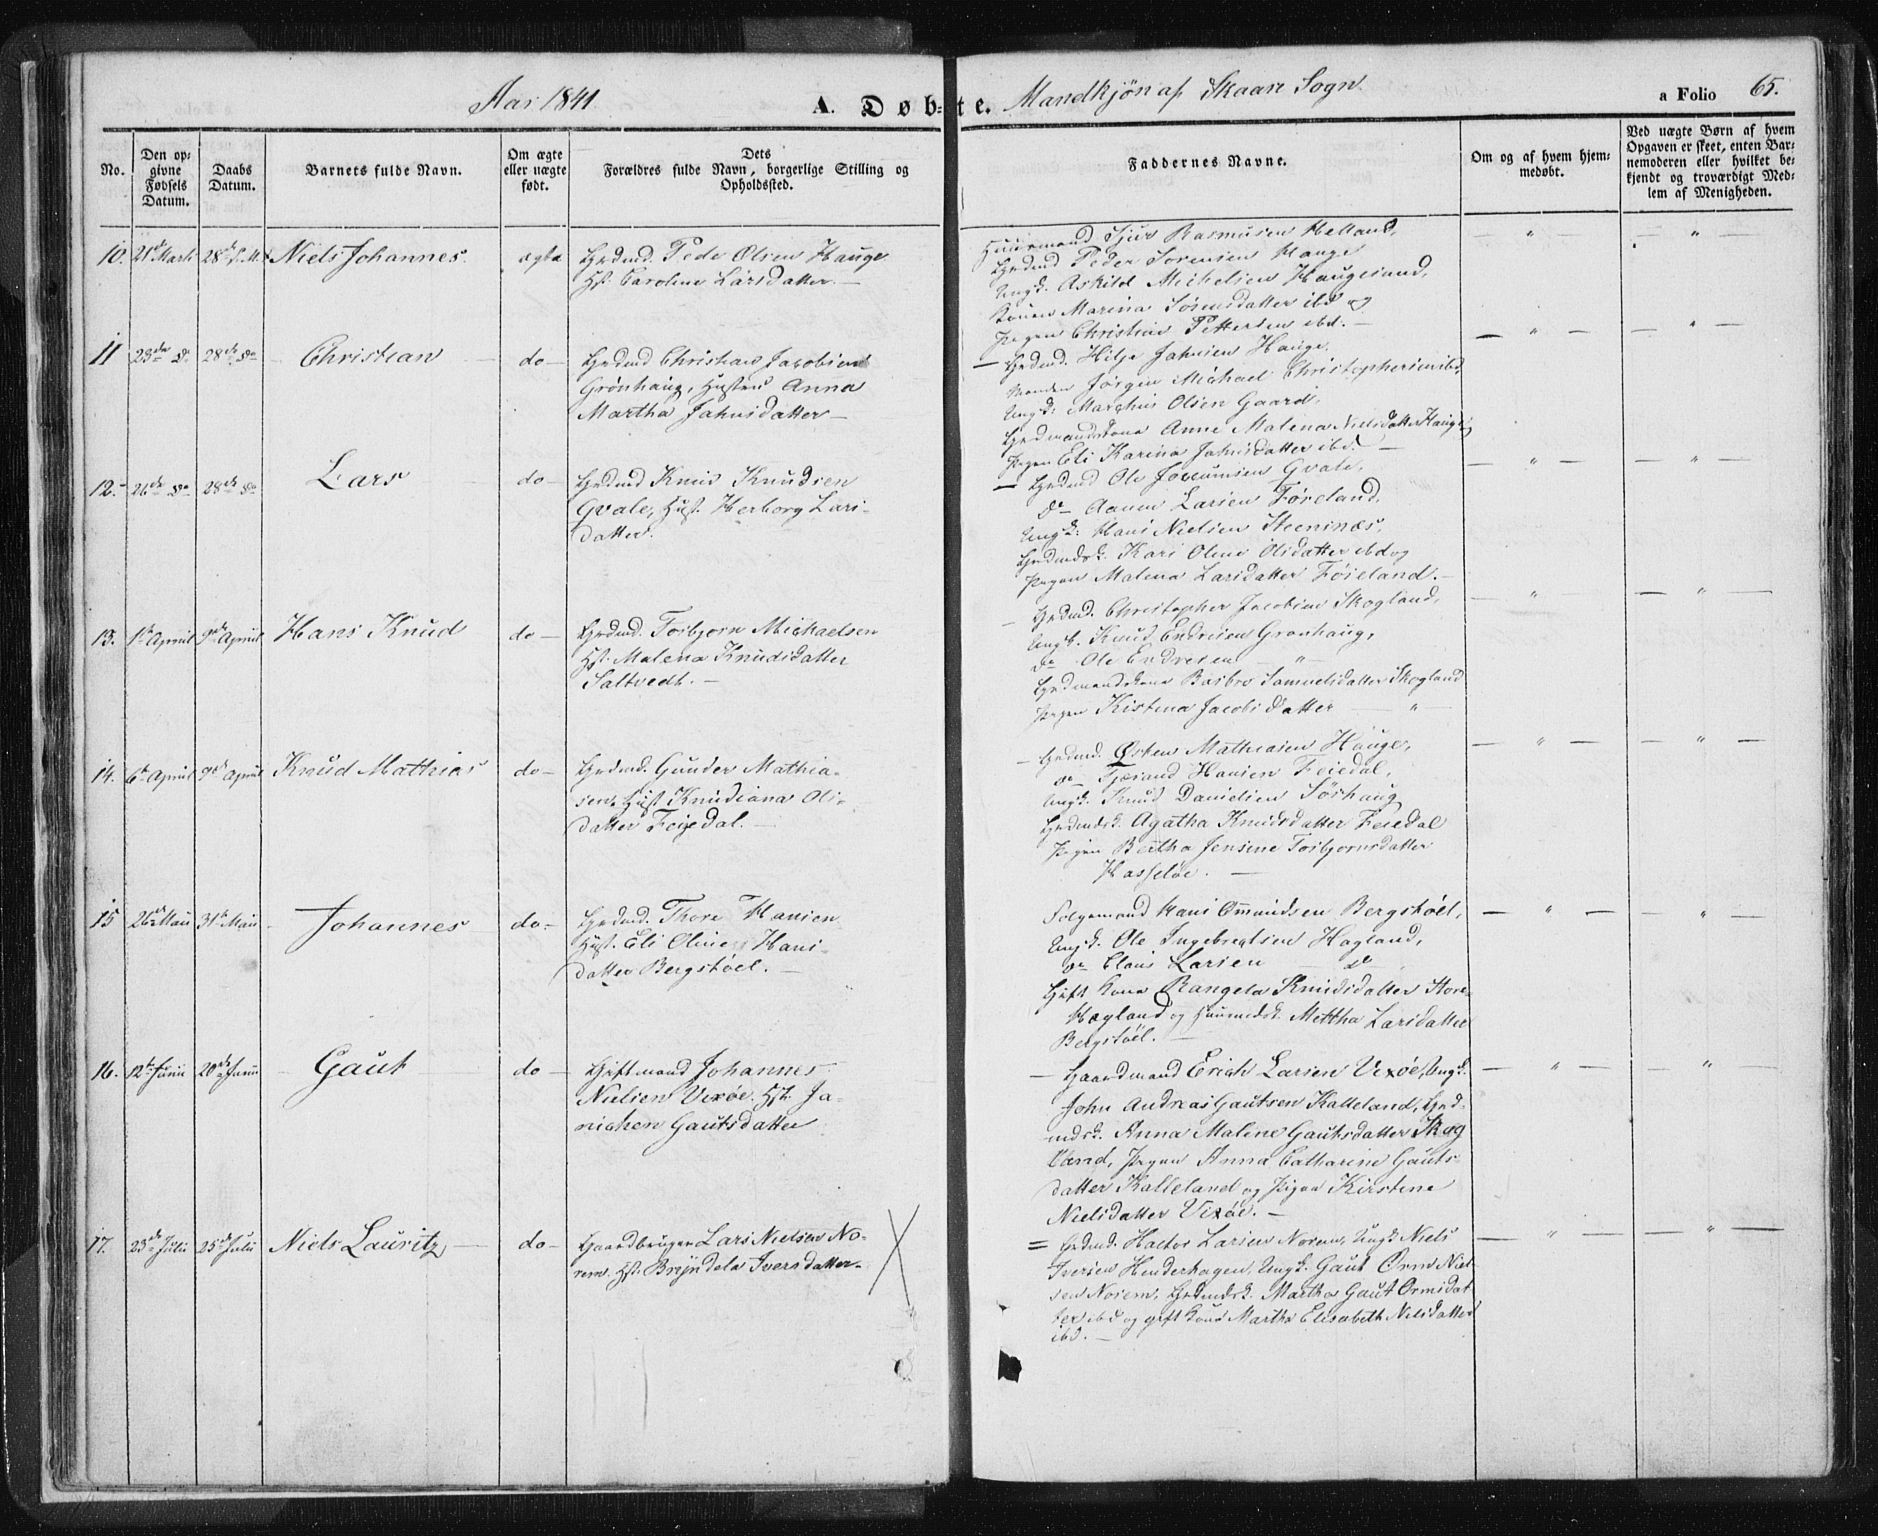 Aar 1841.
A. Døbte. Mandkjøn af Skaare Sogn.
a Folio 65.
No.
Den op-
givne
Fødsels
Datum.
Daabs
Datum.
Barnets fulde Navn.
Om ægte
eller uægte
født.
Dets
Forældres fulde Navn, borgerlige Stilling og
Opholdssted.
Faddernes Navne.
Om og af hvem hjem-
medøbt.
Ved uægte Børn af hvem
Opgaven er skeet, enten Bar-
nemoderen eller hvilket be-
kjendt og troværdigt Med-
lem af Menigheden.
10. 21de Marts 28de s. M. Niels Johannes. ægte
Grdmd. Peder Olsen Hauge
Hst. Caroline Larsdatter. —
Huusmand Sjur Rasmusen Helland,
Grdmd Peder Sorensen Hauge
Ungk. Askild Michelsen Haugesund,
Konen Marina Sørensdatter ibd og
Pigen Christine Pettersen ibd. —
11 23de do 28de do Christian do —
Grdmd Christian Jacobsen
Grønhaug, Hustru Anna
Martha Jahnsdatter —
— Grdmd. Hilje Jahnsen Hauge,
Manden Jørgen Michael Christophersen ibd,
Ungk: Marthis Olsen Gaard,
Grdmandskone Anne Malena Nielsdatter Hauge
Pigen Eli Karina Jahnsdatter ibd. —
12. 26de do 28de do Lars do —
Grdmd Knud Knudsen
Qvale, Hust. Herborg Lars-
datter.
— Grdmd Ole Qvale,
do Aanen Larsen Føreland,
Ungk: Hans Nielsen Steensnæs,
Grdmdsk. Kari Oline Olsdatter ibd og
Pigen Malena Larsdatter Føreland. —
13. 1ste April 9nde April Hans Knud do —
Grdmd. Torbjørn Michaelsen
Hst. Malena Knudsdatter
Saltvedt. —
— Grdmd. Christopher Jacobsen Skogland,
Ungk. Knud Endresen Grønhaug,
do Ole Endresen — " —
Grdmandskone Barbro Samuelsdatter Skogland
Pigen Kistena Jacobsdatter — " —
14. 6te April 9nde April Knud Mathias do —
Grdmd. Gunder Mathia-
sen, Hust Knudiana Ols-
datter Feiedal. —
— Grdmd. Østen Mathiasen Hauge,
do Tjærand Hansen Feiedal,
Ungk. Knud Danielsen Sørhaug
Grdmdsk. Agatha Knudsdatter Feiedal
Pigen Bertha Jensine Torbjørnsdatter
Hasseløe. —
15 26de Mai 31te Mai Johannes do —
Grdmd. Thore Hansen
Hust. Eli Oline Hans-
datter Bergstøel. —
Folgemand Hans Omundsen Bergstøel,
Ungk. Ole Ingebregtsen Hagland,
do Claus Larsen — do
Gift Kone Rangela Knudsdatter Store-
Hagland og Huusmdsk. Mettha Larsdatter
Bergstøel. —
16. 12te Junii 20de Junii Gaut do —
Giftmand Johannes
Nielsen Vixøe. Hst. Ja-
nichen Gautsdatter
— Gaardmand Erich Larsen Vixøe, Ungk.
John Andreas Gautsen Kalleland, Grd-
mdsk. Anna Maline Gautsdatter Skog
land, Pigen Anna Catharine Gauts-
datter Kalleland og Pigen Kirstine
Nielsdatter Vixøe. —
17. 23de Julii 25de Julii Niels Lauritz, do —
Gaardbruger Lars Nielsen No-
rem. Hst. Bryndela Iversdatter.
= Grdmd. Haltor Larsen Norem, Ungk Niels
Iversen Henderhagen, Ungk. Gaut Orm Niel-
sen Norem, Grdmdsk. Martha Gaut Ormsdat-
ter ibd og gift Kone Martha Elisabeth Nielsdatter
ibd. —